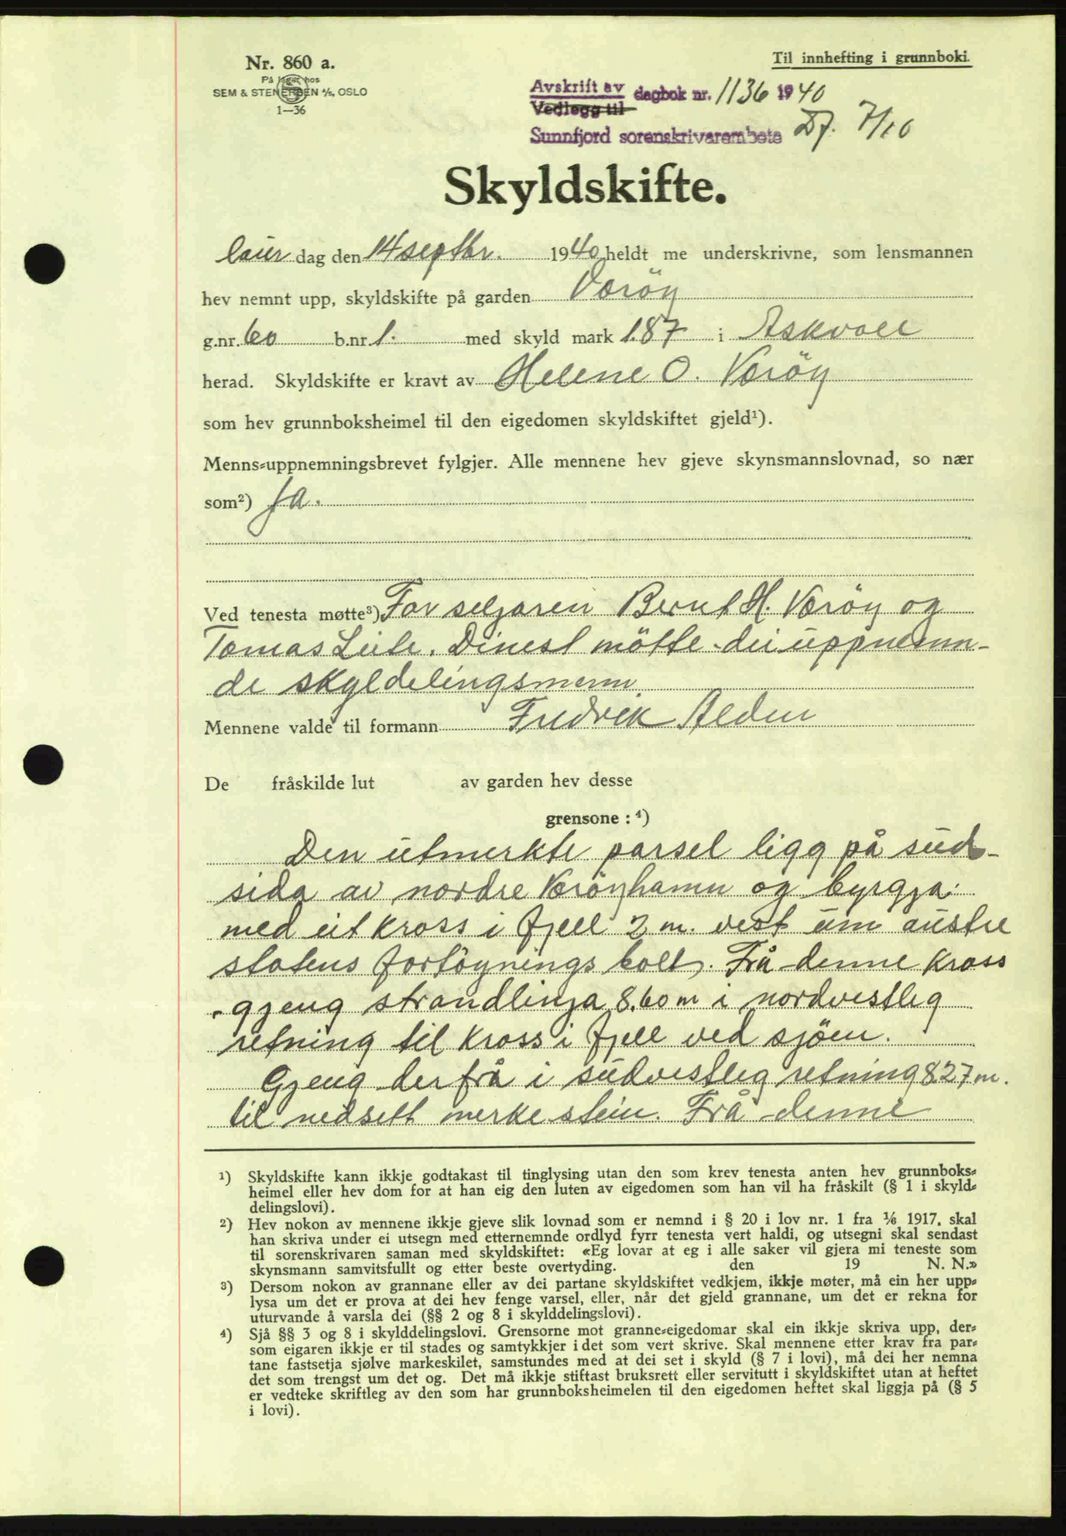 Nr. 860 a.
På lager hos
SEM & STENERSEN A/S, OSLO
1—36
Til innhefting i grunnboki.
Avskrift av dagbok nr. 1136 1940
Vedlegg til
Sunnfjord sorenskrivarembete 7/10
Skyldskifte.
laurdag den 14 septbr. 1940 heldt me underskrivne, som lensmannen
hev nemnt upp, skyldskifte på garden Væröy
g.nr. 60 b.nr. 1. med skyld mark 1.87 i Askvoll
herad. Skyldskifte er kravt av Helene O. Væröy
som hev grunnboksheimel til den eigedomen skyldskiftet gjeld¹).
Menns-uppnemningsbrevet fylgjer. Alle mennene hev gjeve skynsmannslovnad, so nær
som²) Ja.
Ved tenesta møtte³) For seljaren Bernt H. Væröy og
Tomas Leite. Dinest mötte dei uppnemn-
de skyldelingsmenn
Mennene valde til formann Fredrik Alden
De fråskilde lut av garden hev desse
grensone : ⁴)
Den utmerkte parsel ligg på sud-
sida av nordre Væröyhamn og byrgja
med eit kross i fjell 2 m. vest um austre
statens fortöynings bolt. Frå denne kross
gjeng strandlinja 8.60 m i nordvestleg
retning til kross i fjell ved sjöen.
Gjeng derfrå i südvestleg retning 8.27 m.
til nedsett merkestein. Frå denne
¹) Skyldskifte kann ikkje godtakast til tinglysing utan den som krev tenesta anten hev grunnboks-
heimel eller hev dom for at han eig den luten av eigedomen som han vil ha fråskilt (§ 1 i skyld-
delingslovi).
²) Hev nokon av mennene ikkje gjeve slik lovnad som er nemnd i § 20 i lov nr. 1 fra 1/6 1917, skal
han skriva under ei utsegn med etternemnde ordlyd fyrr tenesta vert haldi, og utsegni skal sendast
til sorenskrivaren saman med skyldskiftet: «Eg lovar at eg i alle saker vil gjera mi teneste som
skynsmann samvitsfullt og etter beste overtyding. den 19 N. N.»
³) Dersom nokon av grannane eller av dei partane skyldskiftet vedkjem, ikkje møter, må ein her upp-
lysa um det er prova at dei hev fenge varsel, eller, når det gjeld grannane, um det er rekna for
uturvande å varsla dei (§§ 2 og 8 i skylddelingslovi).
⁴) Sjå §§ 3 og 8 i skylddelingslovi. Grensorne mot granne-eigedomar skal ein ikkje skriva upp, der-
som eigaren ikkje er til stades og samtykkjer i det som vert skrive. Skal mennene etter krav fra par-
tane fastsetja sjølve markeskilet, samstundes med at dei set i skyld (§ 7 i lovi), må dei her nemna
det som trengst um det og. Det må ikkje stiftast bruksrett eller servitutt i skyldskiftet utan at heftet
er vedteke skriftleg av den som har grunnboksheimelen til den eigedomen heftet skal liggja på (§ 5
i lovi).